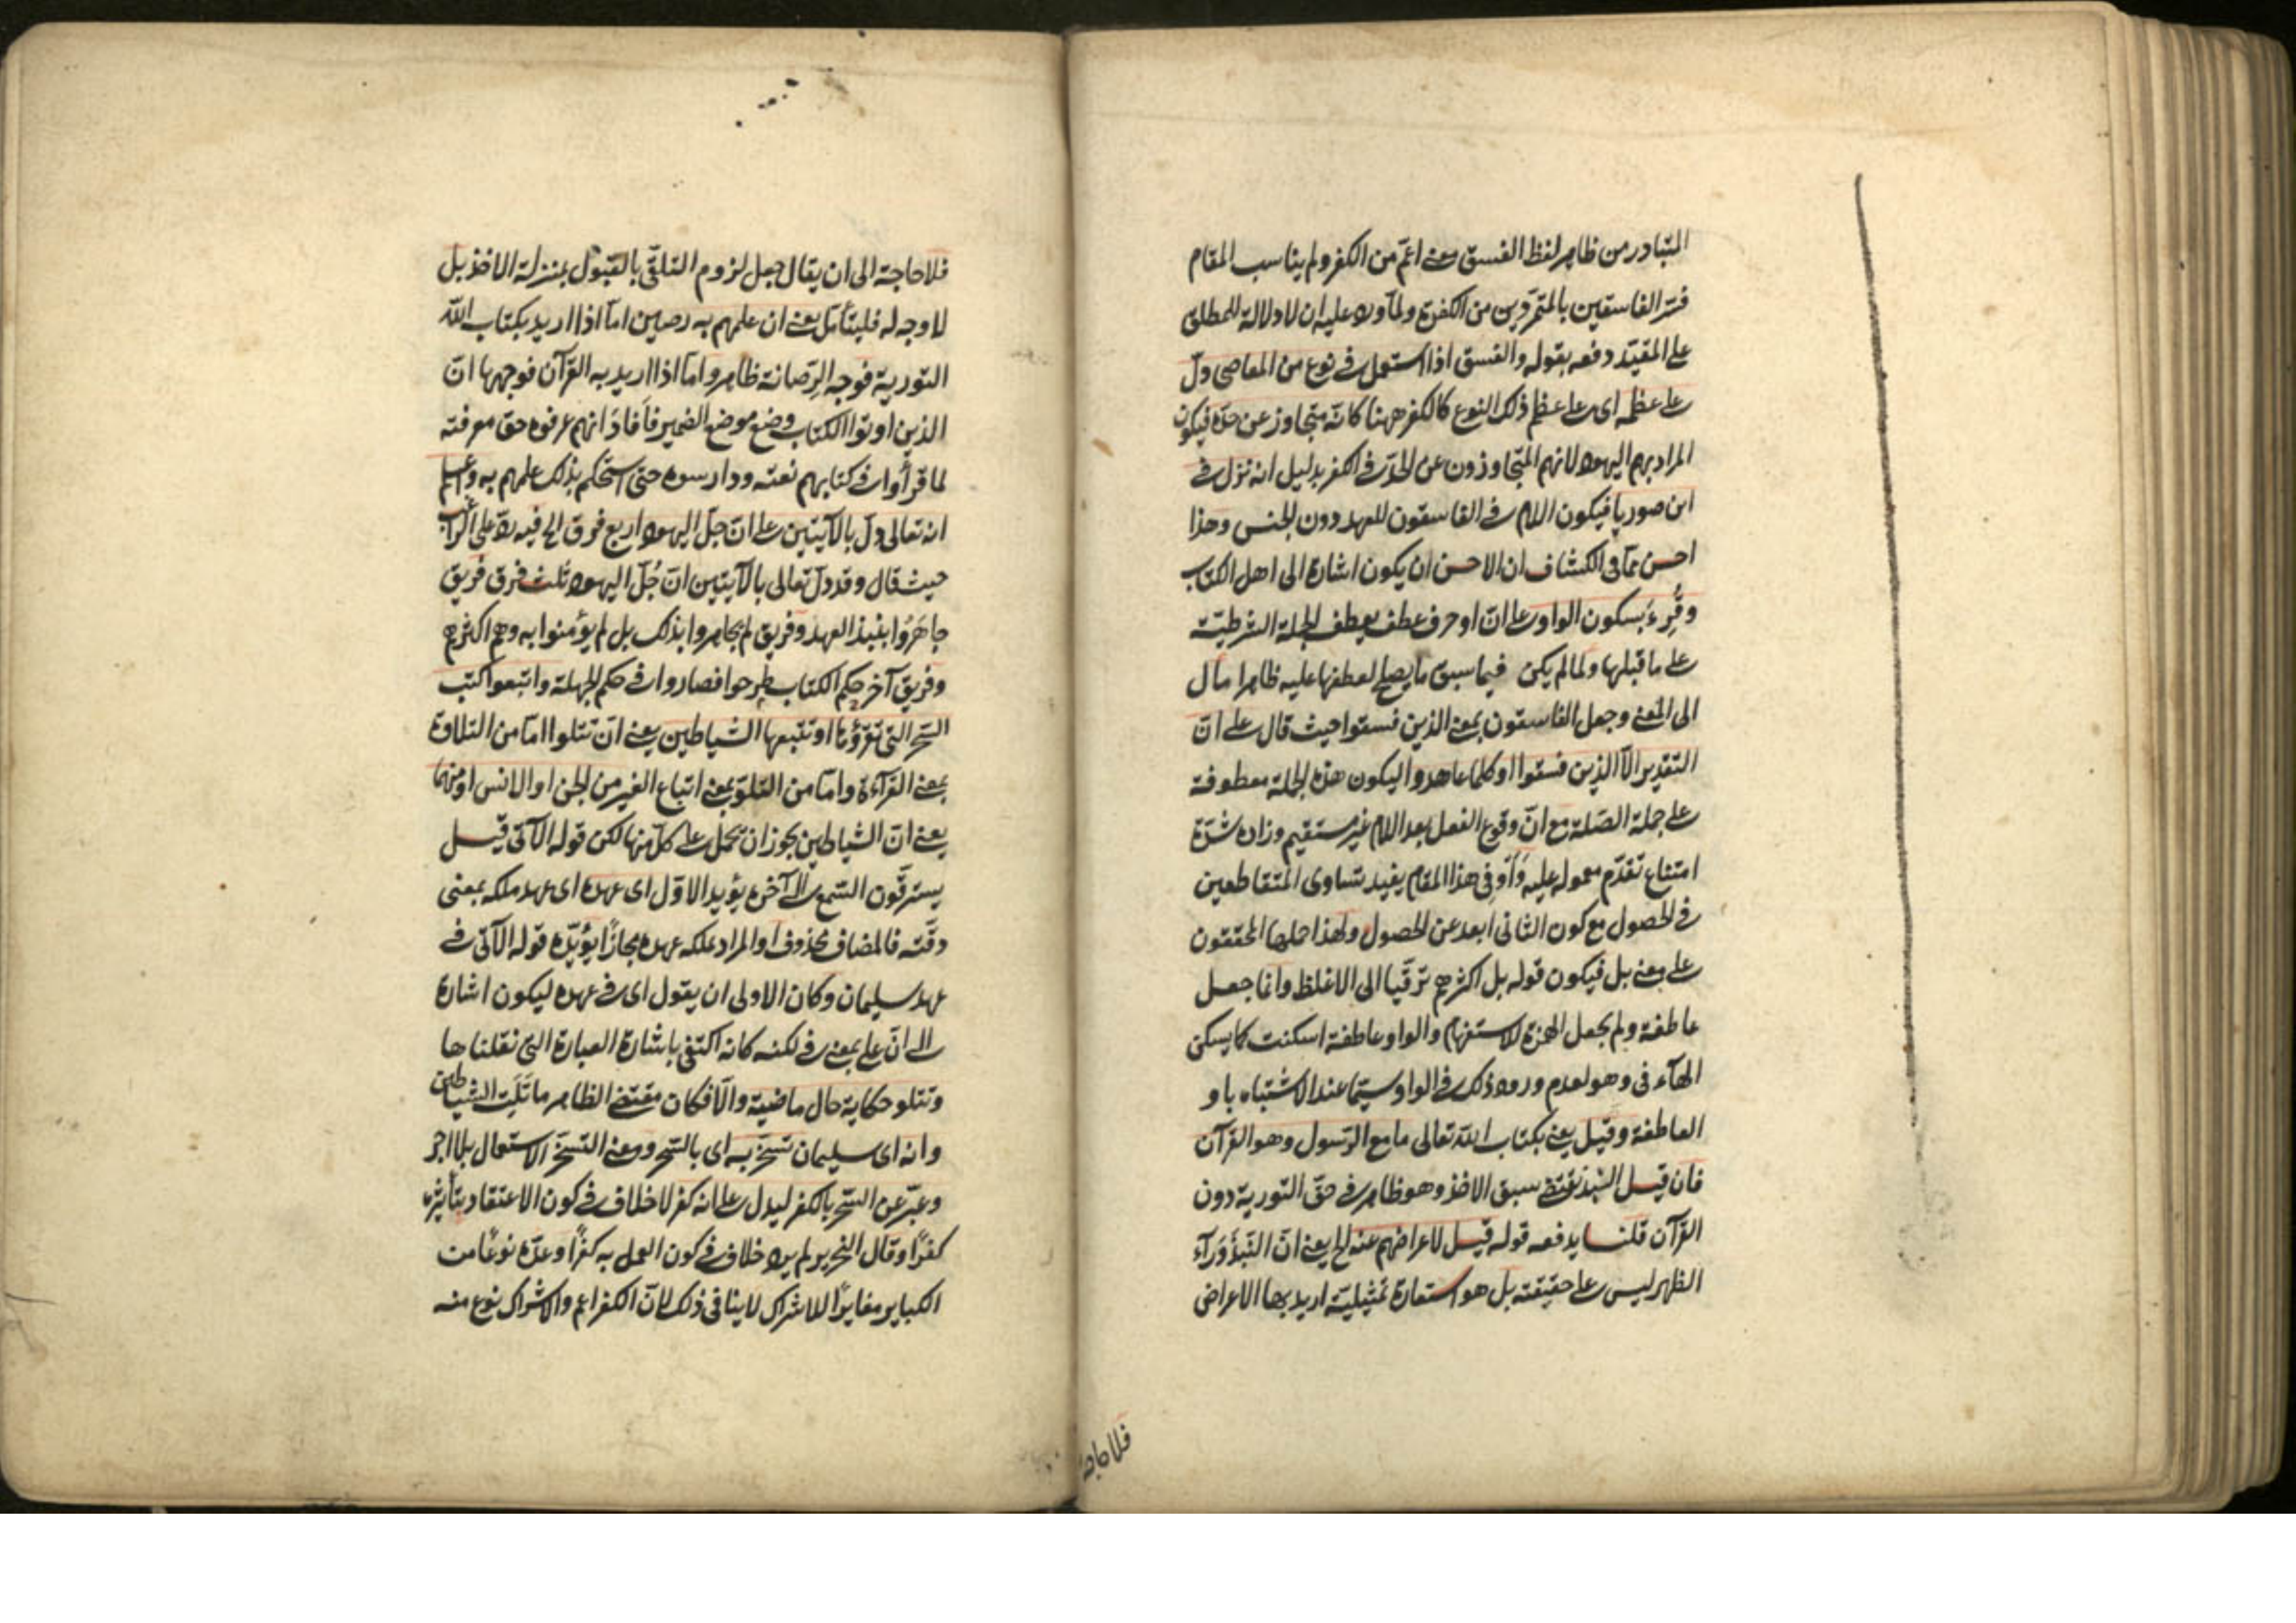 المتبادر من ظاهر لفظ الفسق معنى اعمّ من الكفر ولم يناسب المقام
فسّر الفاسقين بالمتمرّدين من الكفرة ولمّا ورد عليه ان لا دلالة للمطلق
على المقيّد دفعه بقوله والفسق اذا استعمل فى نوع من المعاصى دلّ
على عظمه اى على اعظم ذلك النوع كالكفر ههنا كانّه متجاوز عن حدّه فيكون
المراد بهم اليهود لانهم المتجاوزون عن الحدّ فى الكفر بدليل انه نزل فى
ابن صوريا فيكون اللام فى الفاسقون للعهد دون الجنس وهذا
احسن ممّا فى الكشاف ان الاحسن ان يكون اشارة الى اهل الكتاب
وقُرِءَ بسكون الواو على انّ او حرف عطف يعطف الجملة الشرطيّة
على ما قبلها ولما لم يكن فيما سبق ما يصلح لعطفها عليه ظاهرا مال
الى المعنى وجعل الفاسقون بمعنى الذين فسقوا حيث قال على انّ
التقدير الّا الذين فسقوا او كلما عاهدوا ليكون هذه الجملة معطوفة
على جملة الصّلة مع انّ وقوع الفعل بعد اللام غير مستقيم وزاده شدّة
امتناع تقدّم معموله عليه وَاَوْ فى هذا المقام يفيد تساوى المتقاطعين
فى الحصول مع كون الثانى ابعد عن الحصول ولهذا حملها المحققون
على معنى بل فيكون قوله بل اكثرهم ترقّيا الى الاغلظ وانما جعل
عاطفة ولم يجعل الهمزة للاستفهام والواو عاطفة اسكنت كما يسكن
الهاء فى وهو لعدم ورود ذلك فى الواو سيّما عند الاشتباه باو
العاطفة وقيل يعنى بكتاب الله تعالى ما مع الرّسول وهو القرآن
فان قيل النبذ يقتضى سبق الاخذ وهو ظاهر فى حقّ التورية دون
القرآن قلنا يدفعه قوله قيل لاعراضهم عنه الخ يعنى انّ النّبذَ وَرَآءَ
الظهر ليس على حقيقته بل هو استعارة تمثيليّة اريد بها الاعراض
فلا حاجة
فلا حاجة الى ان يقال جعل لزوم التلقّى بالقبول بمنزلة الاخذ بل
لا وجه له فليتأمل يعنى ان علمهم به رصين امّا اذا اريد بكتاب الله
التورية فوجه الرّصانة ظاهر وامّا اذا اريد به القرآن فوجهها انّ
الذين اوتوا الكتاب وضع موضع الضمير فاَفادَ انهم عرفوه حق معرفته
لما قرأوا فى كتابهم نعته ودارسوه حتى استحكم بذلك علمهم به واعلم
انه تعالى دلّ بالآيتين على انّ جلّ اليهود اربع فرق الخ فيه ردّ على
حيث قال وقد دلّ تعالى بالآيتين انّ جُلّ اليهود ثلث فرق فريق
جاهَرُوا بنبذ العهد وفريق لم يجاهروا بذلك بل لم يؤمنوا به وهم اكثرهم
وفريق آخر حكم الكتاب طرحوا فصاروا فى حكم الجهلة واتبعوا كتب
السّحر التى تقرؤها او تتبعها الشياطين يعنى انّ تتلوا امّا من التلاوة
بمعنى القرآءة وامّا من التلو بمعنى اتباع الغير من الجن او الانس او منهما
يعنى انّ الشياطين يجوز ان تحمل على كلّ منها لكن قوله الآتى قيل
يسترقون السّمع الى آخره يؤيد الاوّل اى عهده اى عهد ملكه بمعنى
وقته فالمضاف محذوف او المراد بملكه عهده مجازًا يؤيّده قوله الآتى فى
عهد سليمان وكان الاولى ان يقول اى فى عهده ليكون اشارة
الى انّ على بمعنى فى لكنه كانه اكتفى باشارة العبارة التى نقلناها
وتتلو حكاية حال ماضية والّا فكان مقتضى الظاهر ما تلت الشياطين
وانه اى سليمان تسخّر به اى بالسّحر ومعنى التسخّر الاستعمال بلا اجر
وعبّر عن السّحر بالكفر ليدل على انه كفر لا خلاف فى كون الاعتقاد بتأثيره
كفرًا وقال النحرير لم يرد خلاف فى كون العمل به كفرًا وعدّه نوعًا من
الكباير مغايرًا للاشراك لا ينافى ذلك لانّ الكفر اعم والاشراك نوع منه